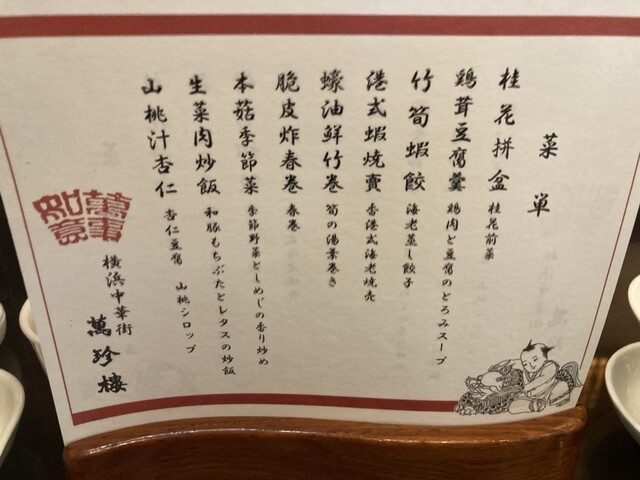 菜単
桂花拼盆 桂花前菜
鶏茸豆腐羹 鶏肉と豆腐のとろみスープ
竹筍蝦餃 海老蒸し餃子
港式蝦焼賣 香港式海老焼売
蠔油鮮竹巻 筍の湯葉巻き
脆皮炸春巻 春巻
本菇季節菜 季節野菜としめじの香り炒め
生菜肉炒飯 和豚もちぶたとレタスの炒飯
山桃汁杏仁 杏仁豆腐 山桃シロップ
萬事如意
横浜中華街
萬珍樓